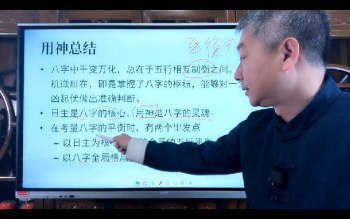 用神总结
• 八字中千变万化，总在于五行相互制衡之间，
机道所在，即是掌握了八字的枢纽，能够对一
凶起伏做出准确判断。
• 日主是八字的核心，用神是八字的灵魂
• 在考量八字的平衡时，有两个出发点
– 以日主为核
– 以八字全局格